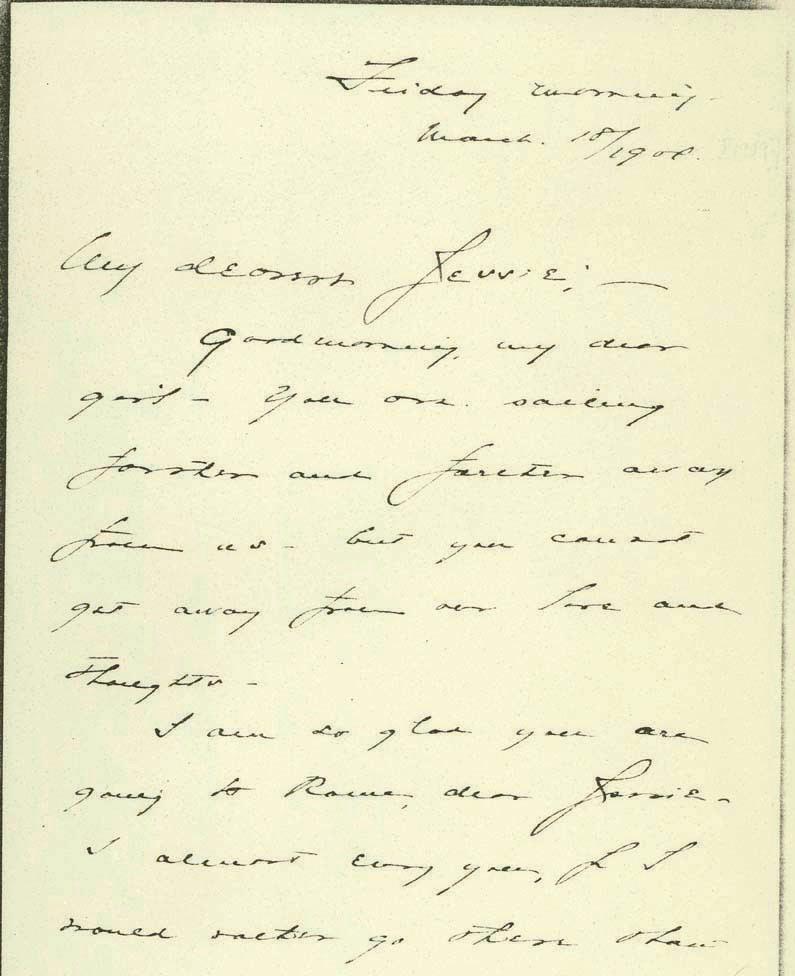 Friday morning -
March. 18/1904.
My dearest Jessie; —
Good morning, my dear
girl - You are sailing
farther and farther away
from us - but you cannot
get away from our love and
thoughts -
I am so glad you are
going to Rome, dear Jessie -
I almost envy you, for I
would rather go there than